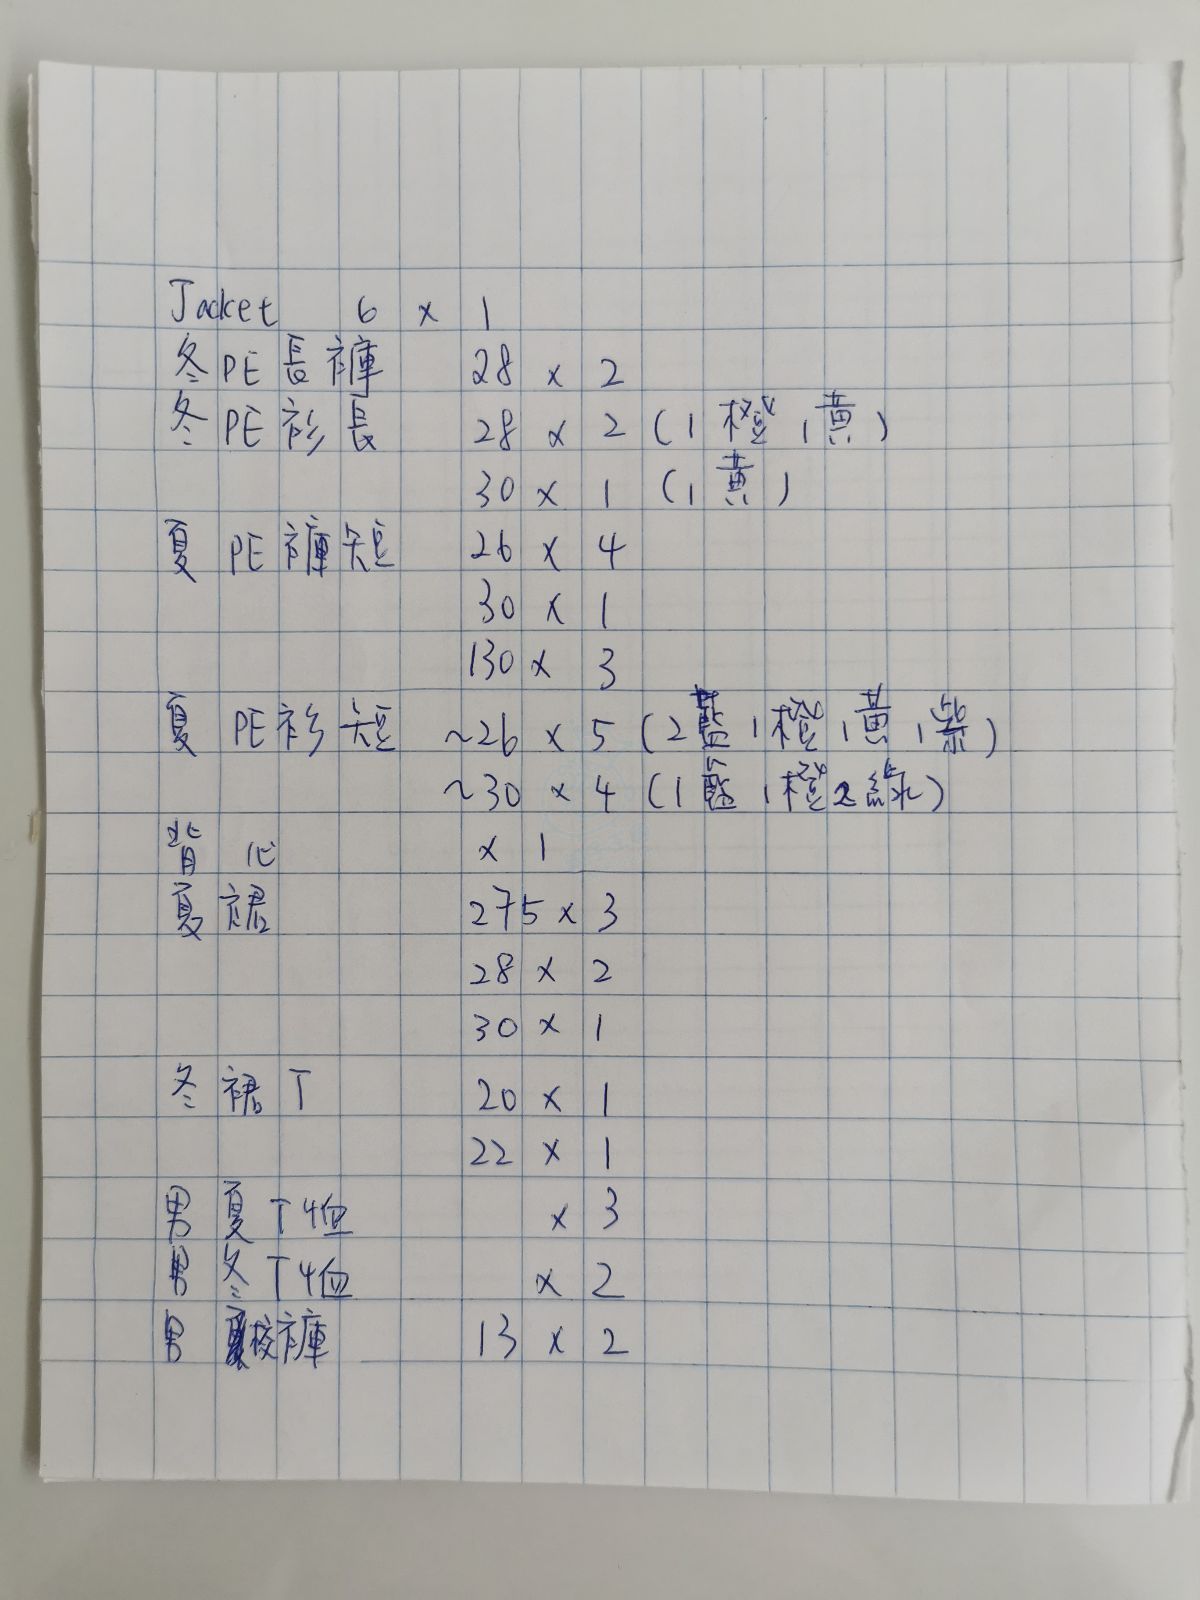 Jacket 6 x 1
冬 PE 長褲 28 x 2
冬 PE 衫長 28 x 2 (1 橙 1 黃)
30 x 1 (1 黃)
夏 PE 褲短 26 x 4
30 x 1
130 x 3
夏 PE 衫短 ~26 x 5 (2 藍 1 橙 1 黃 1 紫)
~30 x 4 (1 藍 1 橙 2 綠)
背心 x 1
夏裙 275 x 3
28 x 2
30 x 1
冬裙 T 20 x 1
22 x 1
男夏 T 恤 x 3
男冬 T 恤 x 2
男校褲 13 x 2